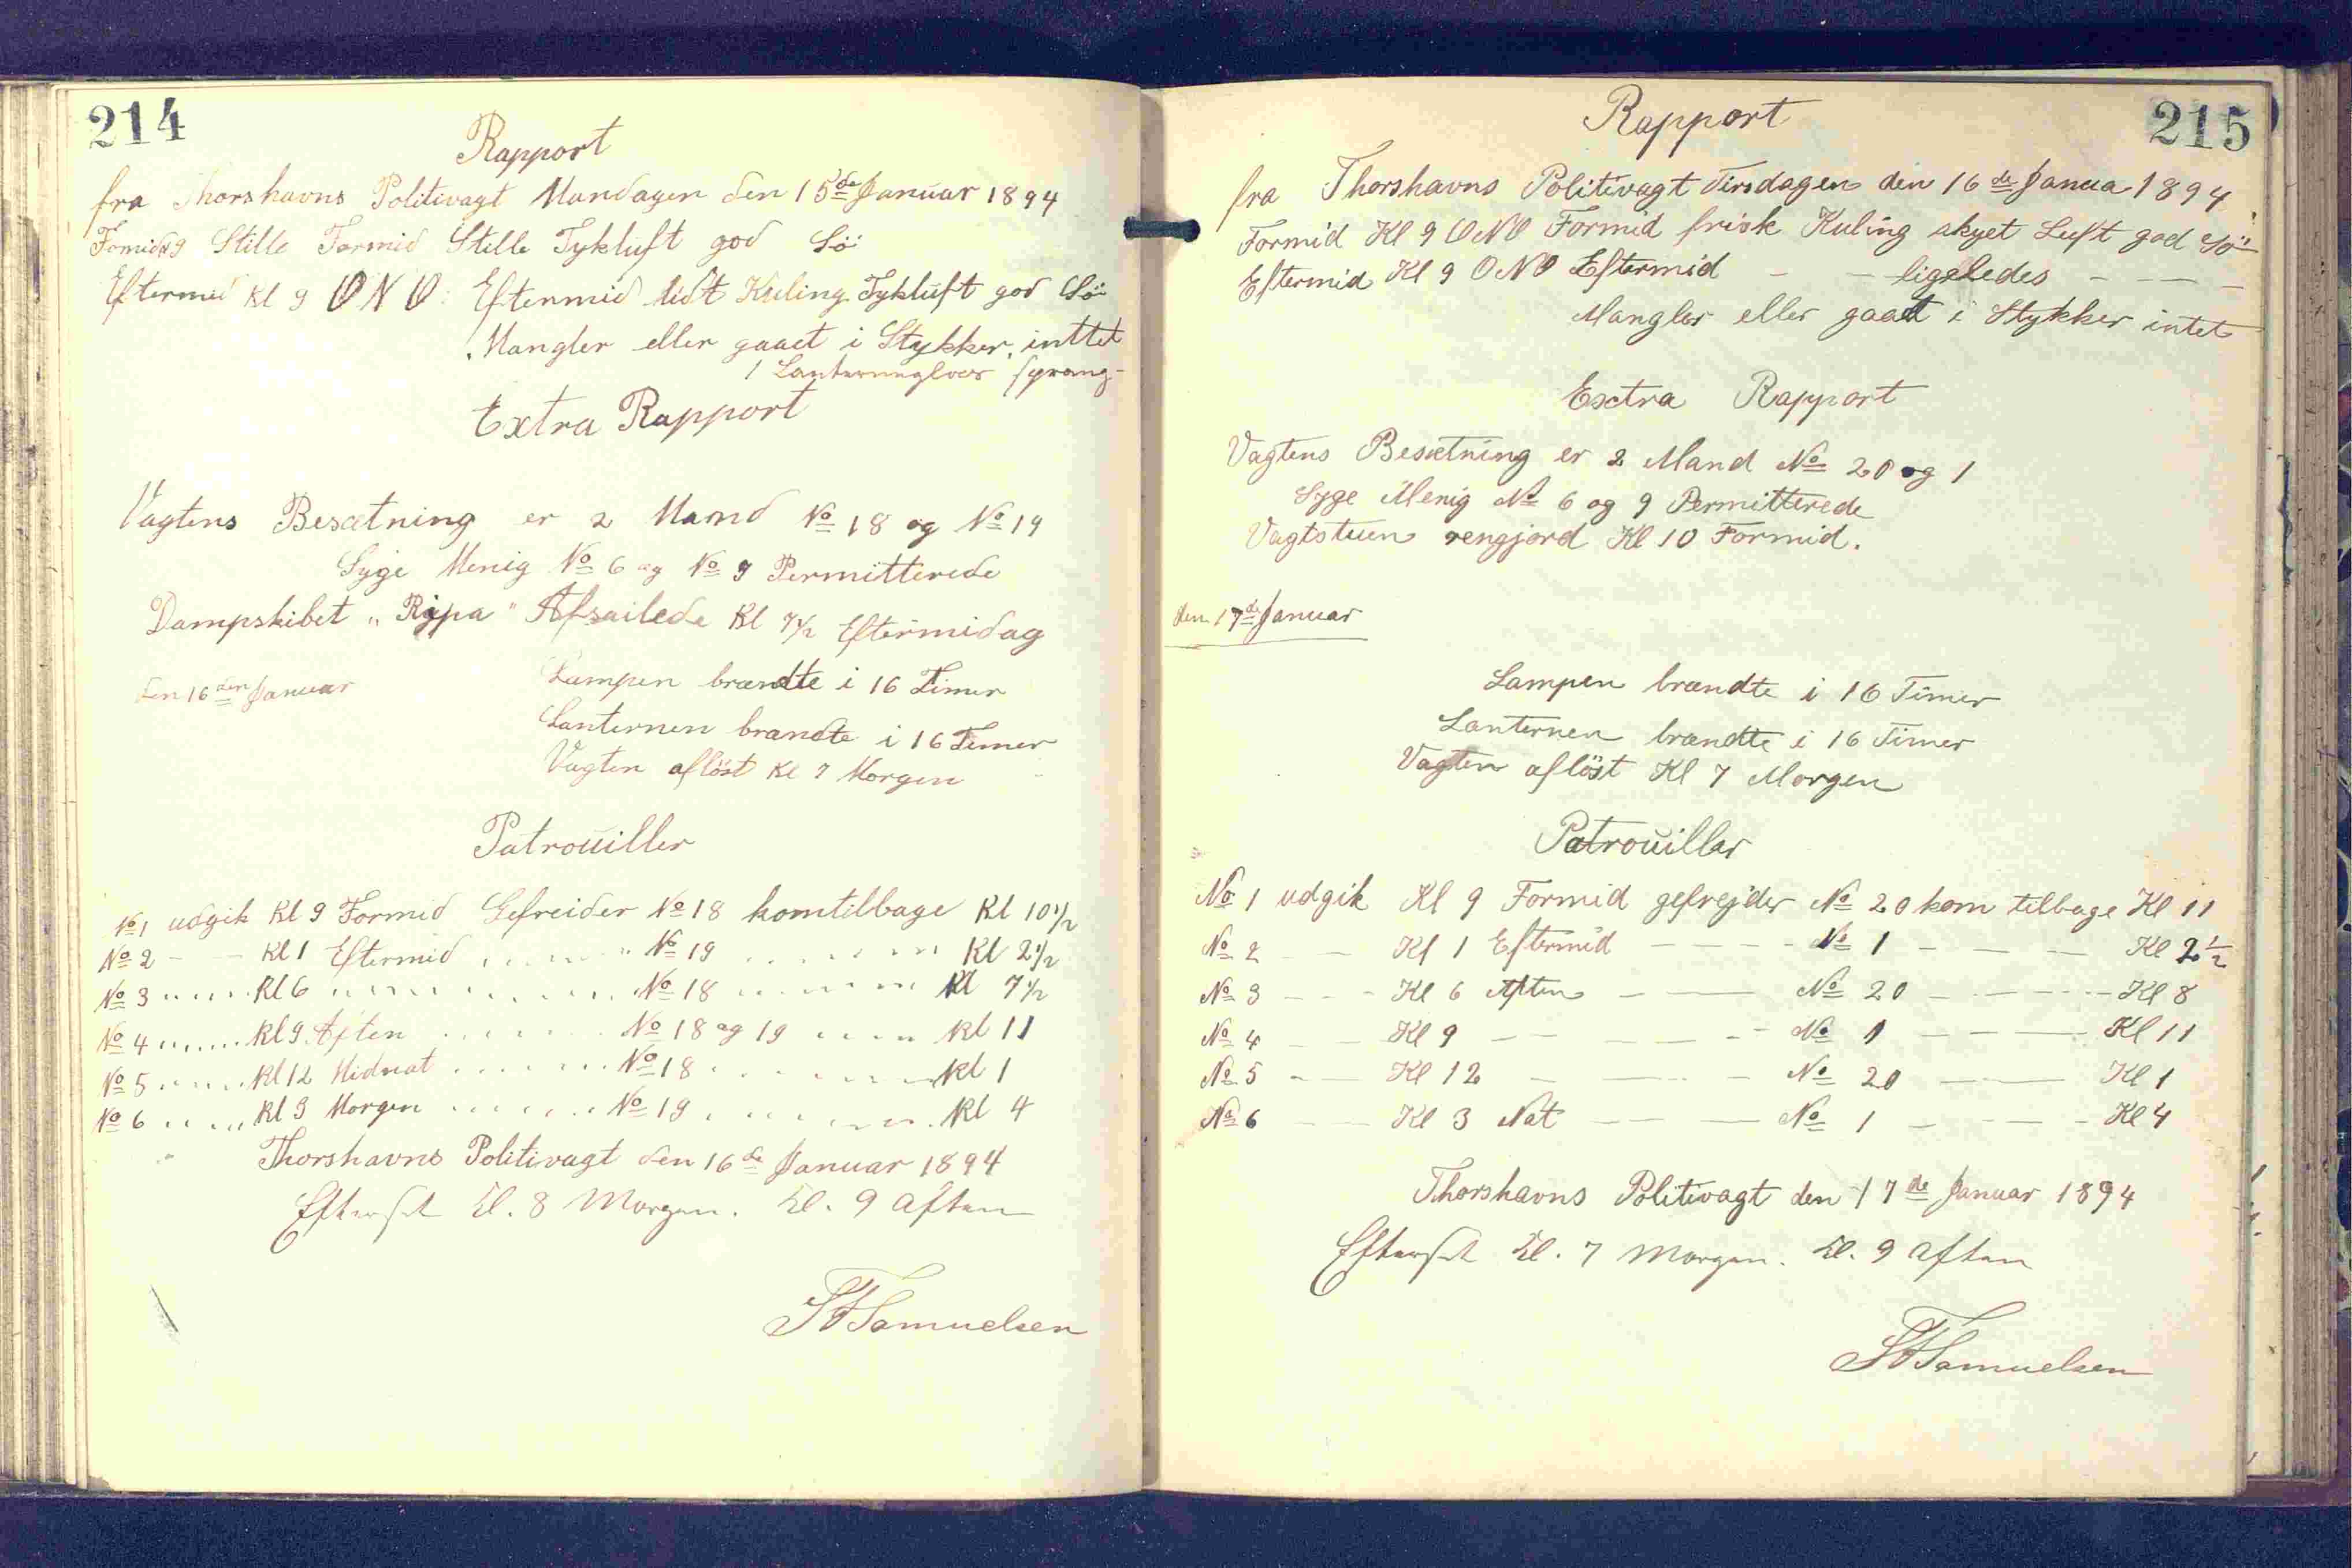 214
Rapport
fra Thorshavns Politivagt Mandagen den 15de Januar 1894
Stille Formid Stille Tykluft god Sö
Eftermid Kl 9 ONO: Eftermid lidt Kuling Tykluft god Sö
Mangler eller gaaet i Stykker, inttet
1 Lanterneglas sprang
Extra Rapport
Vagtens Besætning er 2 Mand No 18 og No 19
Syge Menig No 6 og No 9 Permitterede
Dampskibet „Ripa" Afsailede Kl 7½ Eftermidag
den 16den Januar
Lampen brændte i 16 Timer
Lanternen brændte i 16 Timer
Vagten aflöst Kl 7 Morgen
Patrouiller
No 1 udgik Kl 9 Formid Gefreider No 18 kom tilbage Kl 10½
No 2 - - Kl 1 Eftermid ...... No 19 ...... Kl 2½
No 3 ...... Kl 6 ...... No 18 ...... Kl 7½
No 4 ...... Kl 9 Aften ...... No 18 og 19 ...... Kl 11
No 5 ...... Kl 12 Midnat ...... No 18 ...... Kl 1
No 6 ...... Kl 3 Morgen ...... No 19 ...... Kl 4
Thorshavns Politivagt den 16de Januar 1894
Efterset Kl. 8 Morgen. Kl. 9 Aften
Samuelsen
215
Rapport
fra Thorshavns Politivagt Tirsdagen den 16de Janua 1894
Formid Kl 9 ONO Formid frisk Kuling skyet Luft god Sö
Eftermid Kl 9 ONO Eftermid - - ligeledes - - - -
Mangler eller gaaet i Stykker intet
Esctra Rapport
Vagtens Besætning er 2 Mand No 20 og 1
Syge Menig No 6 og 9 Permitterede
Vagtstuen rengjord Kl 10 Formid.
den 17de Januar
Lampen brændte i 16 Timer
Lanternen brændte i 16 Timer
Vagten aflöst Kl 7 Morgen
Patrouiller
No 1 udgik Kl 9 Formid gefrejder No 20 kom tilbage Kl 11
No 2 - - Kl 1 Eftermid - - - - No 1 - - - Kl 2½
No 3 - - - Kl 6 Aften - - No 20 - - - - Kl 8
No 4 - - Kl 9 - - - - - No 1 - - - Kl 11
No 5 - - Kl 12 - - - No 20 - - Kl 1
No 6 - - Kl 3 Nat - - - No 1 - - - - Kl 4
Thorshavns Politivagt den 17de Januar 1894
Efterset Kl. 7 Morgen. Kl. 9 Aften
Samuelsen